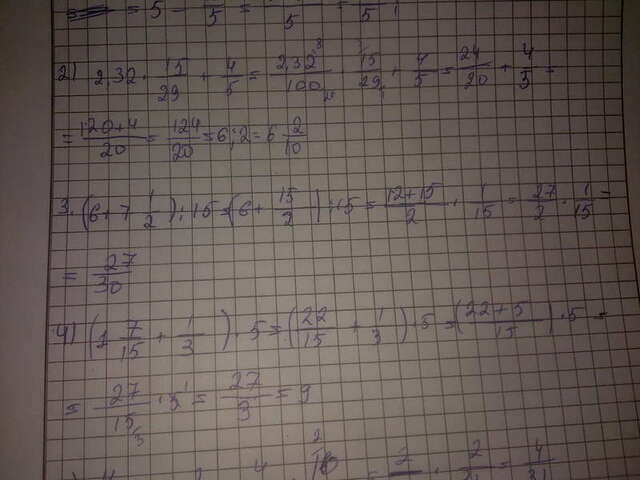 = 5 - /5 = /5 = /5
2) 2,32 · 15/29 + 4/5 = 2,32/100 · 15/29 + 4/5 = 24/20 + 4/5 =
= 120+4/20 = 124/20 = 6,2 = 6 2/10
3. (6 + 7 1/2) : 15 = (6 + 15/2) : 15 = 12+15/2 · 1/15 = 27/2 · 1/15 =
= 27/30
4) (1 7/15 + 1/3) · 5 = (22/15 + 1/3) · 5 = (22+5/15) · 5 =
= 27/15 · 5 = 27/3 = 9